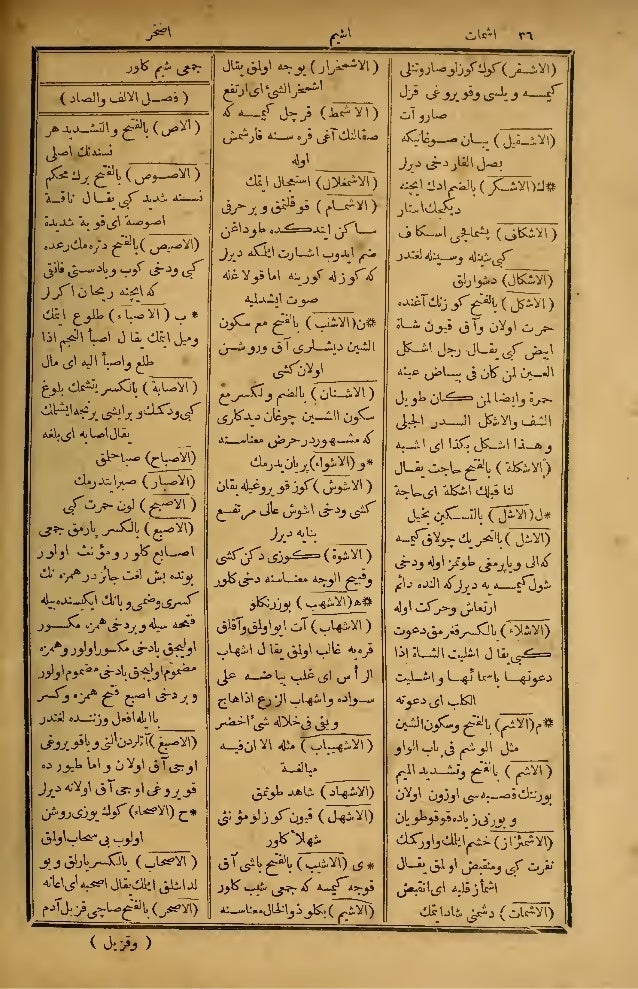 ٣٦ اشمات
اشيم
اصحر
(الاشقر) كوك كوزلو صارو تنلى
كيمسه و يلسى و قويروغى قزل
صارو آت
(الاشقيل) يبان صوغانيكه
بصل الفار دخى ديرلر
*ك (الاشكر) بالضم ادك ايچنه
ديكيجك استار
(الاشكاف) پشماقجى اسكاف
كبى شينله وسينله لغتدر
(الاشكال) دشوارلق
(الاشكل) بالفتح كوزنك آغنده
حمرت اولان وآق قيون شاة
ابيض كبى يقال رجل اشكل
العين لمن كان فى بياض عينه
حمرة وايضا لمن كان طويل
الشف والاشكل السدر الجبلى
وهذا اشكل بكذا اى اشبه
(الاشكلة) بالفتح حاجت يقال
لنا قبلك اشكلة اى حاجة
*ل (الاشل) بالتسكين بخيل
(الاشل) بالتحريك چولاق كيمسه
كه الى و يا پرمغى طوتمز اوله ودخى
شول كيمسه يه ديرلر كه النده دائم
ارتعاش وحركت اوله
(الاشلاء) بالكسر قدرمق دعوت
كبى يقال اشليت الشاة اذا
دعوتها باسمائها و اشليت
الكلب اى دعوته
*م (الاشم) بالفتح وسكون الشين
مثل الوشم فى باب الواو
(الاشم) بالفتح وتشديد الميم
بورننك قصبه سى اوزون اولان
و بورنى زياده قوقو طويان
(الاشمئزاز) خشم ايلك واوركك
نفرت كبى ومنقبض اولمق يقال
اشمأز قلبه اى انقبض
(الاشمات) دشمنى شاد ايتمك
(الاشمخرار) يوجه اولمق يقال
اشمخر الشئ اى ارتفع
(الاشمط) قرچل كيمسه كه
صقالنك آغى قره سنه قارشمش
اوله
(الاشمعلال) استعجال ايتمك
(الاشمام) قوقلتمق و بر حرفى
ساكن ايتدكده طوداغن
ضم ايدوب اشارت ايلكه ديرلر
كه كوزله كورينه اما قولاغنه
صوت ايشدلميه
*ن (الاشنب) بالفتح مع سكون
الشين ديشلرى آق وروشن
اولان كشى
(الاشنان) بالضم ولكسر مع
سكون الشين چوغان ديدكلرى
كه مشهوردر حرض معناسنه
*و (الاشواء) بريان يدرمك
(الاشوش) كوز قويروغيله بقان
كشى ودخى اشوش عالى مرتفع
بنايه ديرلر
(الاشوة) كوزى دكن كشى
وقبيح الوجه معناسنه دخى كلور
*ه (الاشهب) بوزرنكلو
(الاشهاب) آت ابو اولق وآقلق
قره يه غالب اولق يقال اشهاب
الرأس اى غلب بياضه على
سواده واشهاب الزرع اذا هاج
وبقى فى خلاله شئ اخضر
(الاشهيباب) مثله الا ان فيه
مبالغة
(الاشهاد) شاهد طوتمق
(الاشهل) قيون كوزلو مؤنثى
شهلاء كلور
*ى (الاشيب) بالفتح باشى آق
قوجه كيمسه كه جمعى شيب كلور
(الاشيم) بكلو ذو الخال معناسنه
جمعى شيم كلور
(فصل الالف والصاد)
(الاص) بالفتح و التشديد هر
نسنه نك اصلى
(الاصوص) بالفتح برك محكم
نسنه شديد كبى يقال ناقة
اصوصة اى قوية شديدة
(الاصيص) بالفتح دتره مك رعده
كبى ودخى كوپ و يا دستى قانتى
كه ايچنه ريحان اكرلر
*ب (الاصباء) طلوع ايتمك
وميل ايتمك يقال اصبأ النجم اذا
طلع واصبأ اليه اى مال
(الاصابة) بالكسر يتشمك بلوغ
كبى
يقال اصابه اى بلغه
(الاصباح) صباحلق
(الاصبار) صبر ايتدرمك
(الاصبح) لون حمرت كبى
(الاصبع) بالكسر پارمق جمعى
اصابع كلور ومؤنث اولور
بونده بش لغت جائزدر همزه نك
كسرى وضمى و بانك ايكيسنده بيله
فتحه سيله و بردخى همزه مكسور
اوليجق با دخى مكسور اولور و همزه
مضموم اوليجق با دخى مضموم اولور
و بر دخى اصبع فتح همزه وكسر
با ايله افعل وزننده لغتدر
(الاصبغ) آتلردن آلنى و يا قويروغى
اوجى آق اولان و اما طيورده
قويروغى اوجى آق اولانه ديرلر
*ح (الاصحاء) كوك يوزى روشن
اولوب بى سحاب اولق
(الاصحاب) بالكسر يارلق و يو
لداشلق ايلك يقال اصحبه اى اعانه
(الاصحر) بالفتح صاچى قزيل آدم
(وقزيل)